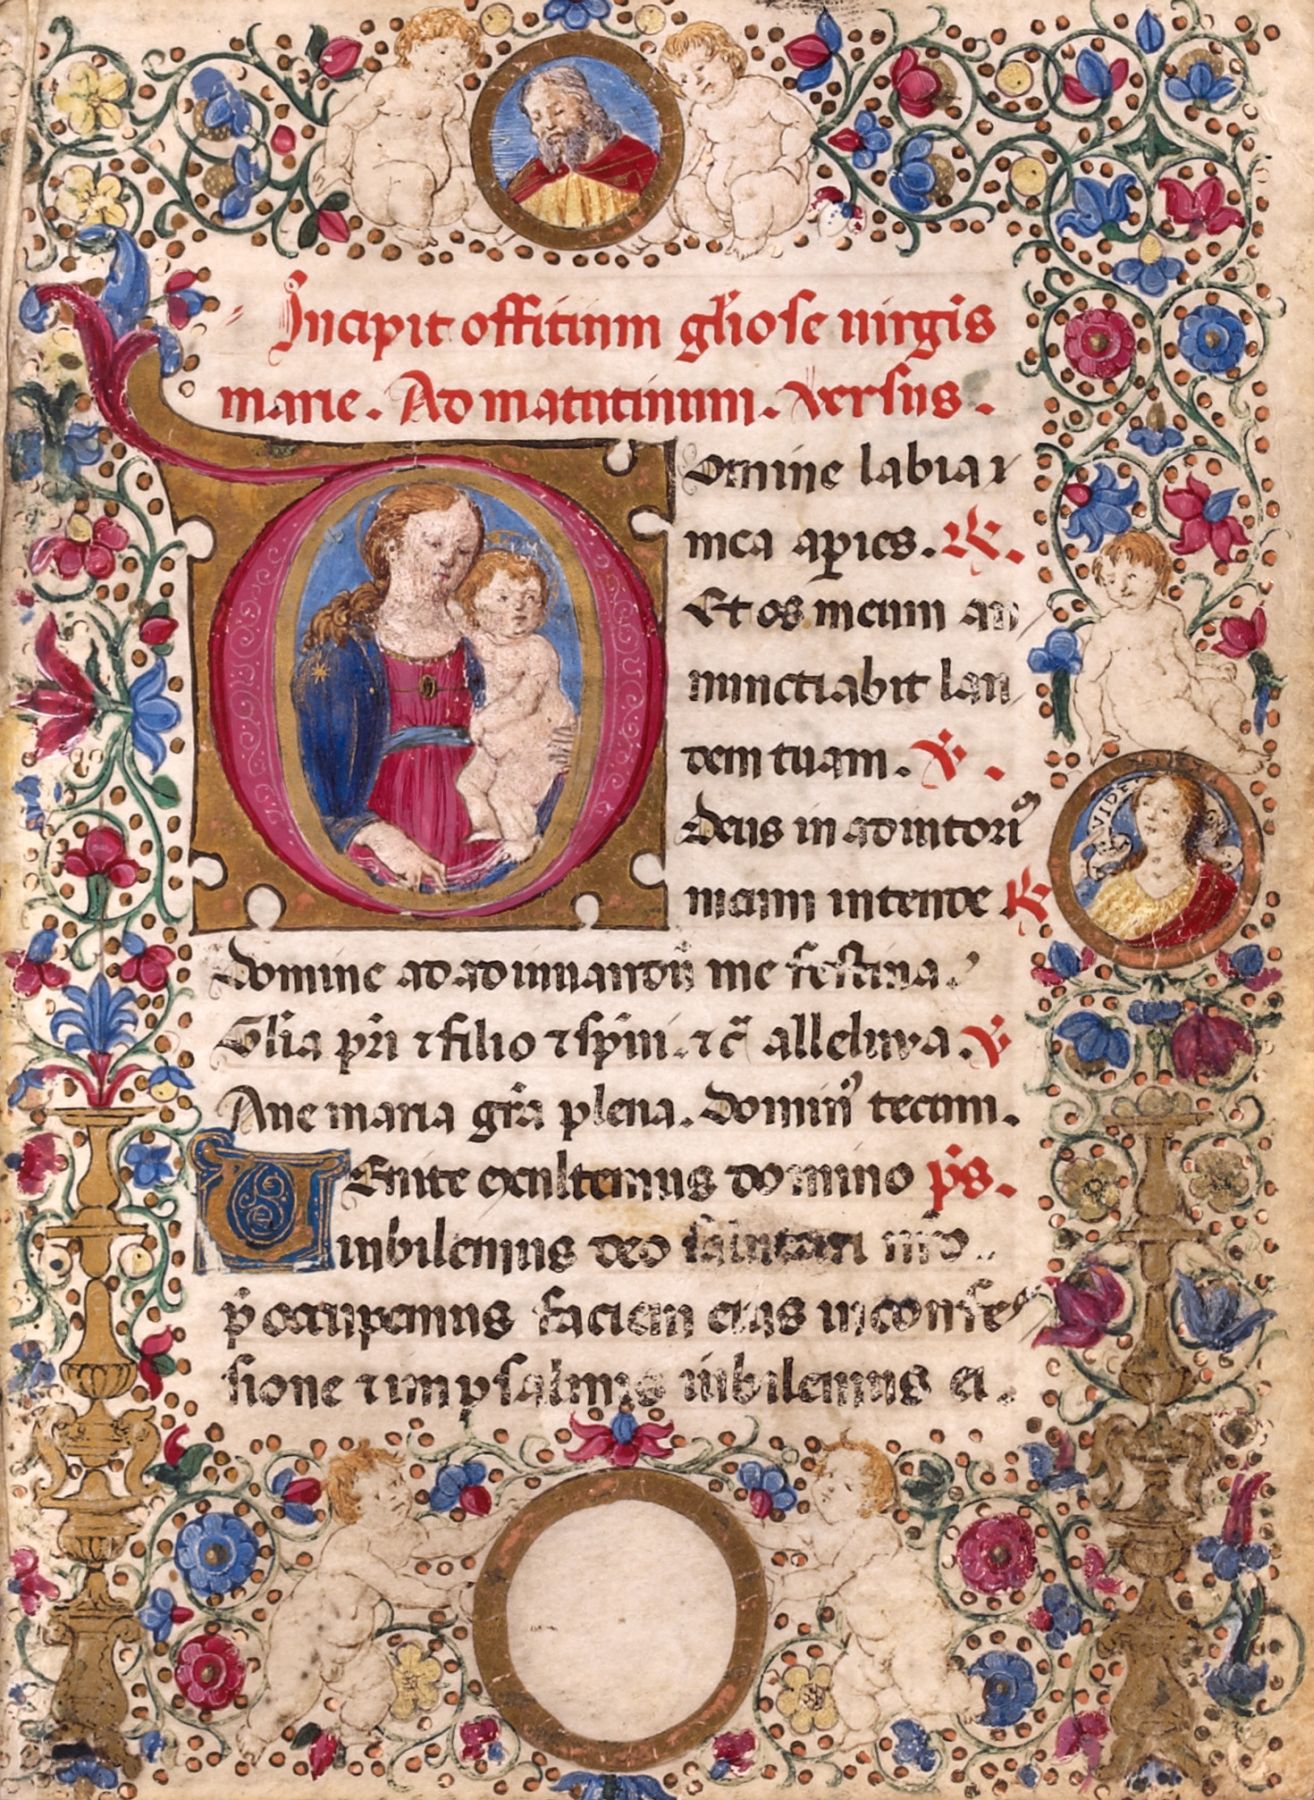 Incipit offitium gl̄iose uirgis̄
marie. Ad matutinum. versus.
Domine labia
mea apies. R.
Et os meum an
nunctiabit lau
dem tuam. V.
Deus in adiutoriū
meum intende R
Domine ad adiuuandū me festina.
Gl̄ia pr̄i ⁊ filio ⁊ sp̄ui. ⁊ c̄ alleluya. V
Aue maria gr̄a plena. Domin᷒ tecum.
VEnite exultemus domino p̄s.
iubilemus deo salutari nr̄o..
p̄occupemus faciem eius in confes
sione ⁊ im psalmis iubilemus ei.
VIDE